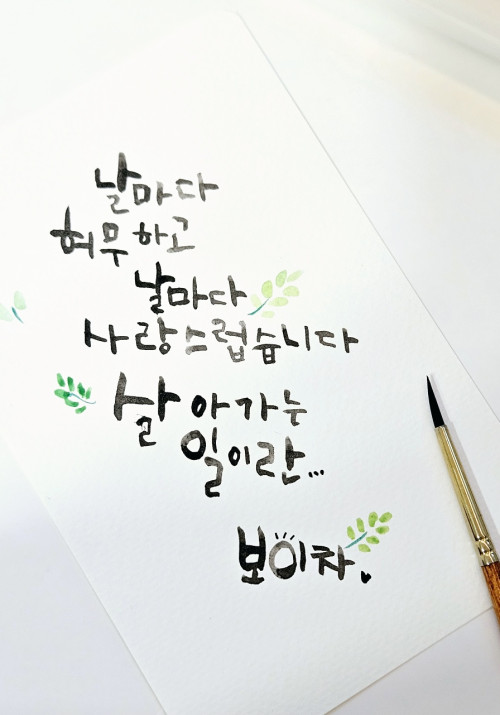 날마다
허무하고
날마다
사랑스럽습니다
살아가는
일이란...
보이차